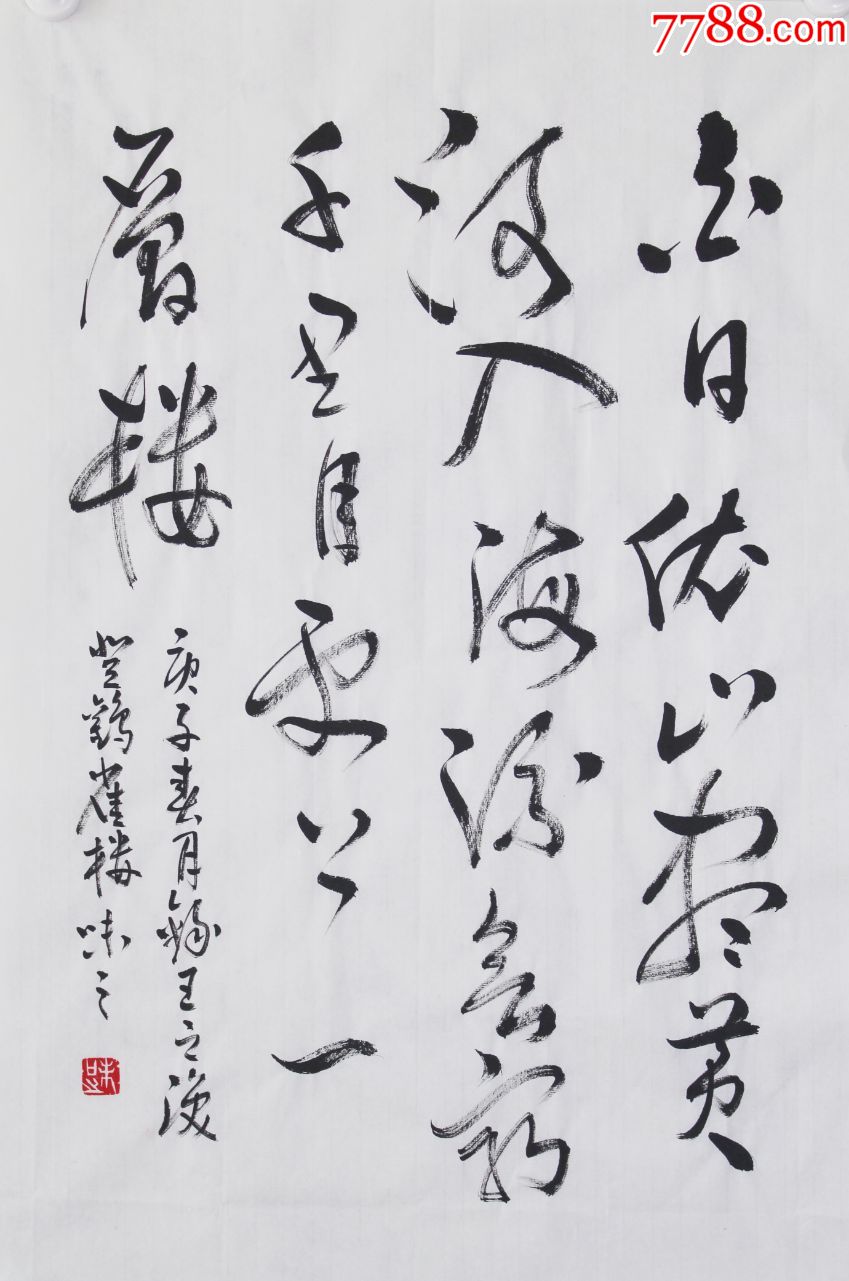 7788.com
白日依山尽黄
河入海流欲窮
千里目更上一
層楼
庚子春月錄王之渙
登鸛雀楼 味之